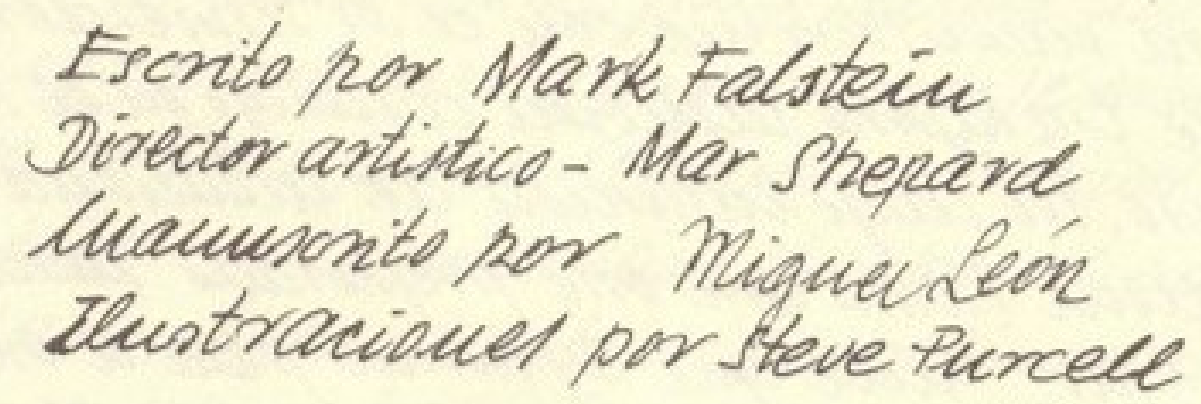 Escrito por Mark Falstein
Director artistico - Mar Shepard
Manuscrito por Miguel León
Ilustraciones por Steve Purcell